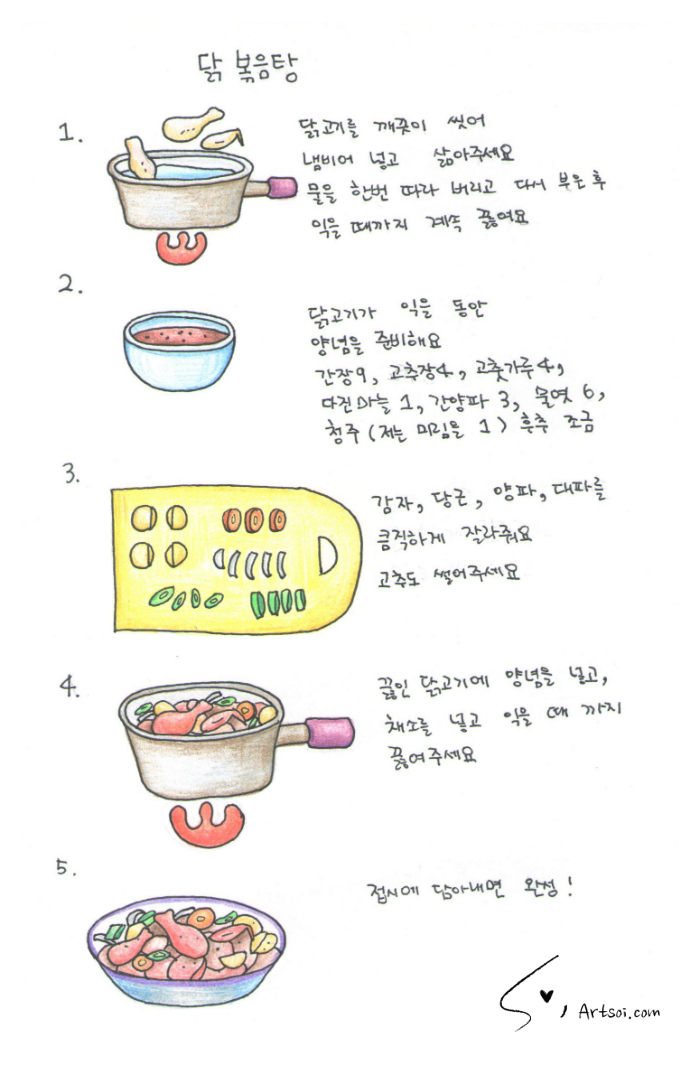 닭 볶음탕
1.
닭고기를 깨끗이 씻어
냄비어 넣고 삶아주세요
물을 한번 따라 버리고 다시 부은 후
익을 때까지 계속 끓여요
2.
닭고기가 익을 동안
양념을 준비해요
간장9, 고추장4, 고춧가루4,
다진마늘 1, 간양파 3, 물엿 6,
청주 (저는 미림을 1) 후추 조금
3.
감자, 당근, 양파, 대파를
큼직하게 잘라줘요
고추도 썰어주세요
4.
끓인 닭고기에 양념을 넣고,
채소를 넣고 익을 때 까지
끓여주세요
5.
접시에 담아내면 완성!
Artsoi.com